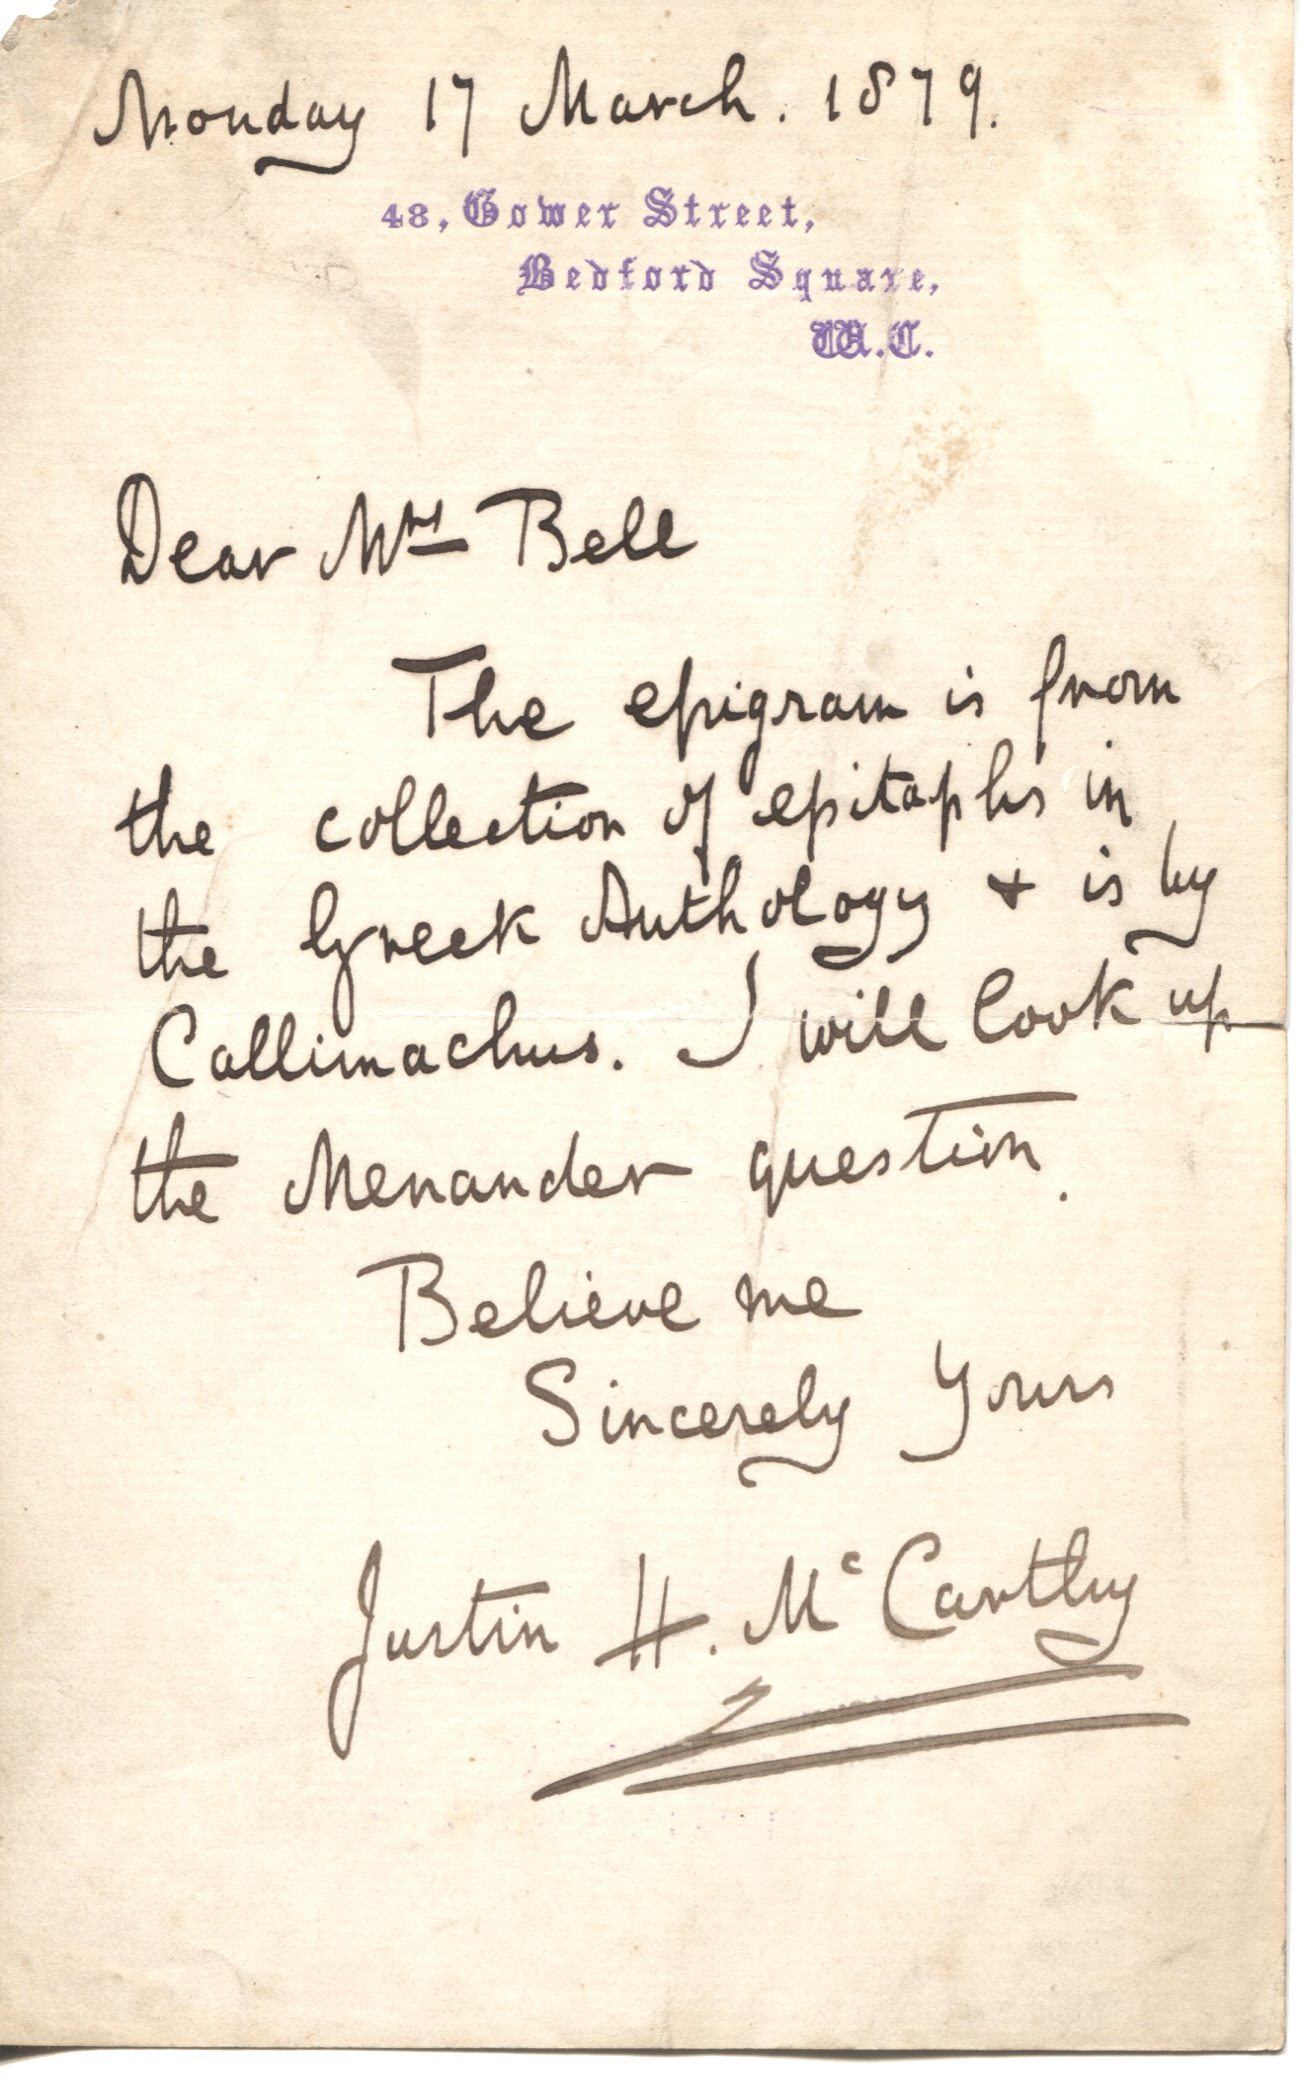 Monday 17 March. 1879.
48, Gower Street,
Bedford Square,
W.C.
Dear Mrs Bell
The epigram is from
the collection of epitaphs in
the Greek Anthology + is by
Callimachus. I will look up
the Menander question.
Believe me
Sincerely Yours
Justin H. McCarthy